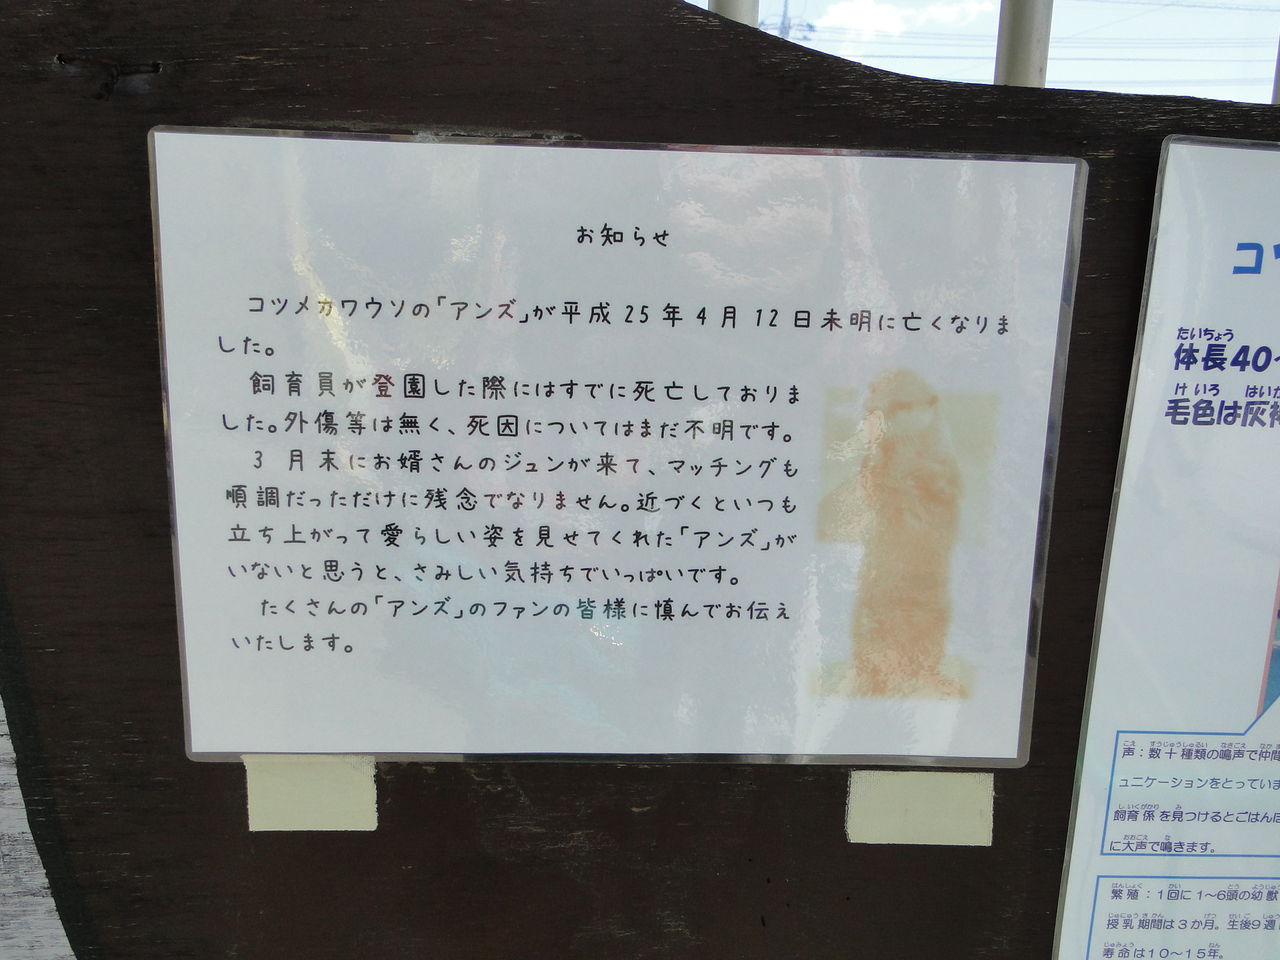 お知らせ
コツメカワウソの「アンズ」が平成25年4月12日未明に亡くなりま
した。
飼育員が登園した際にはすでに死亡しておりま
した。外傷等は無く、死因についてはまだ不明です。
3月末にお婿さんのジュンが来て、マッチングも
順調だっただけに残念でなりません。近づくといつも
立ち上がって愛らしい姿を見せてくれた「アンズ」が
いないと思うと、さみしい気持ちでいっぱいです。
たくさんの「アンズ」のファンの皆様に慎んでお伝え
いたします。
コツ
たいちょう
体長40~
けいろ はいか
毛色は灰褐
こえ すうじゅうしゅるい なきごえ なかま
声：数十種類の鳴声で仲間
ュニケーションをとっていま
しいくがかり み
飼育係を見つけるとごはんほ
おおごえ な
に大声で鳴きます。
はんしょく かい とう ようじゅう
繁殖：1回に1～6頭の幼獣
じゅにゅうきかん げつ せいご しゅう
授乳期間は3か月。生後9週
じゅみょう ねん
寿命は10～15年。